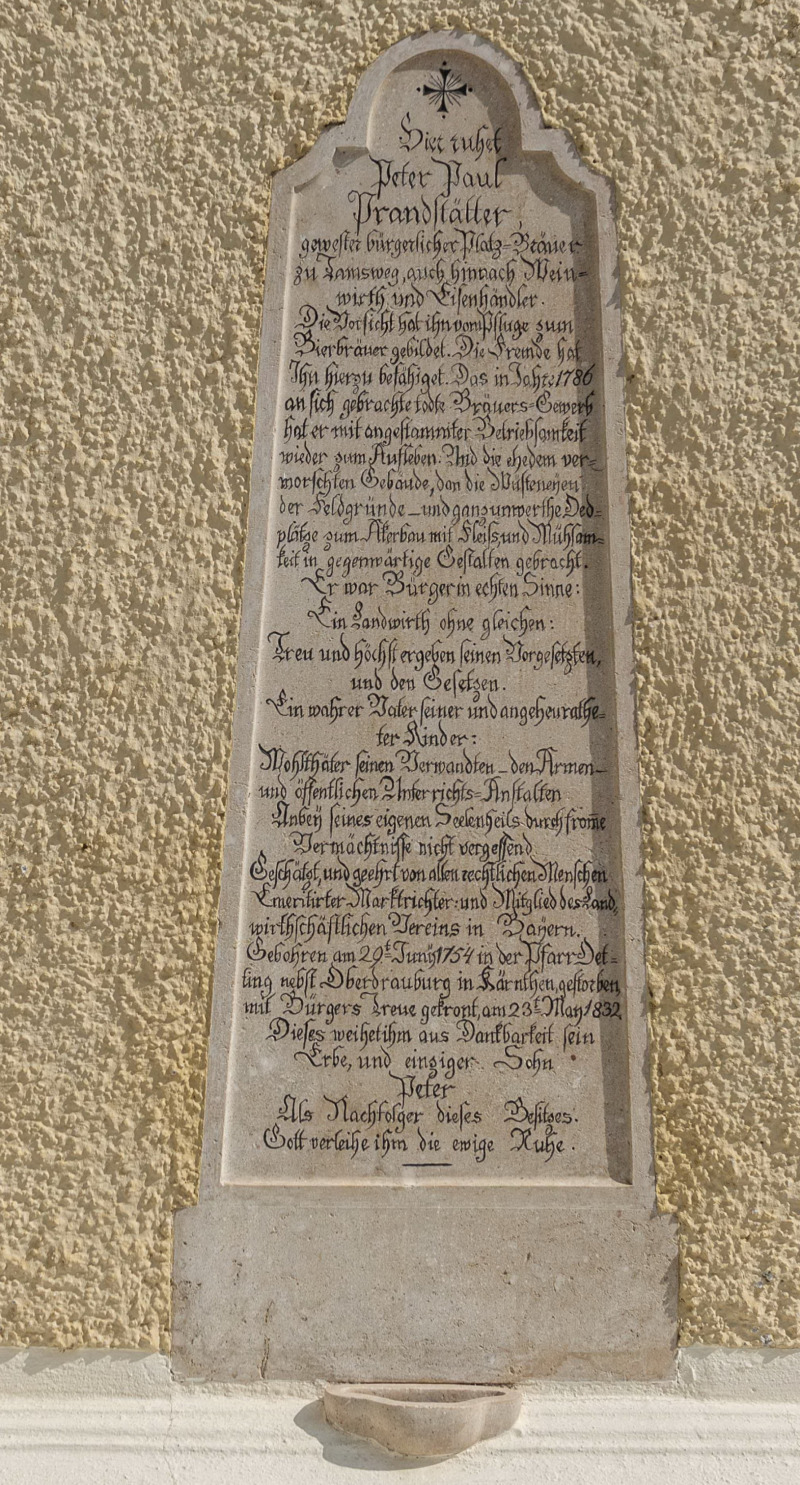 Hier ruhet
Peter Paul
Prandstätter,
gewester bürgerlicher Platz=Bräuer
zu Tamsweg, auch hinnach Wein=
wirth und Eisenhändler.
Die Vorsicht hat ihn vom Pfluge zum
Bierbräuer gebildet. Die Fremde hat
Ihn hierzu befähiget. Das in Jahre 1786
an sich gebrachte todte Bräuers=Gewerb
hat er mit angestammter Betriebsamkeit
wieder zum Aufleben: Und die ehedem ver=
morschten Gebäude, dan die Wüsteneyen
der Feldgründe _ und ganz unwerthe Oed=
plätze zum Akerbau mit Fleiß und Mühsam=
keit in gegenwärtige Gestalten gebracht.
Er war Bürger in echten Sinne:
Ein Landwirth ohne gleichen:
Treu und höchst ergeben seinen Vorgesetzten,
und den Gesetzen.
Ein wahrer Vater seiner und angeheurathe=
ter Kinder:
Wohlthäter seinen Verwandten _ den Armen _
und öffentlichen Unterrichts=Anstalten
Anbey seines eigenen Seelenheils durch frome
Vermächtnisse nicht vergessend
Geschätzt, und geehrt von allen rechtlichen Menschen
Emeritirter Marktrichter: und Mitglied des Land,
wirthschäftlichen Vereins in Bayern.
Gebohren am 29t Juny 1754 in der Pfarr Det=
ling nebst Oberdrauburg in Kärnthen, gestorben
mit Bürgers Treue gekront, am 23t May 1832
Dieses weihet ihm aus Dankbarkeit sein
Erbe, und einziger Sohn
Peter
Als Nachfolger dieses Besitzes.
Gott verleihe ihm die ewige Ruhe.